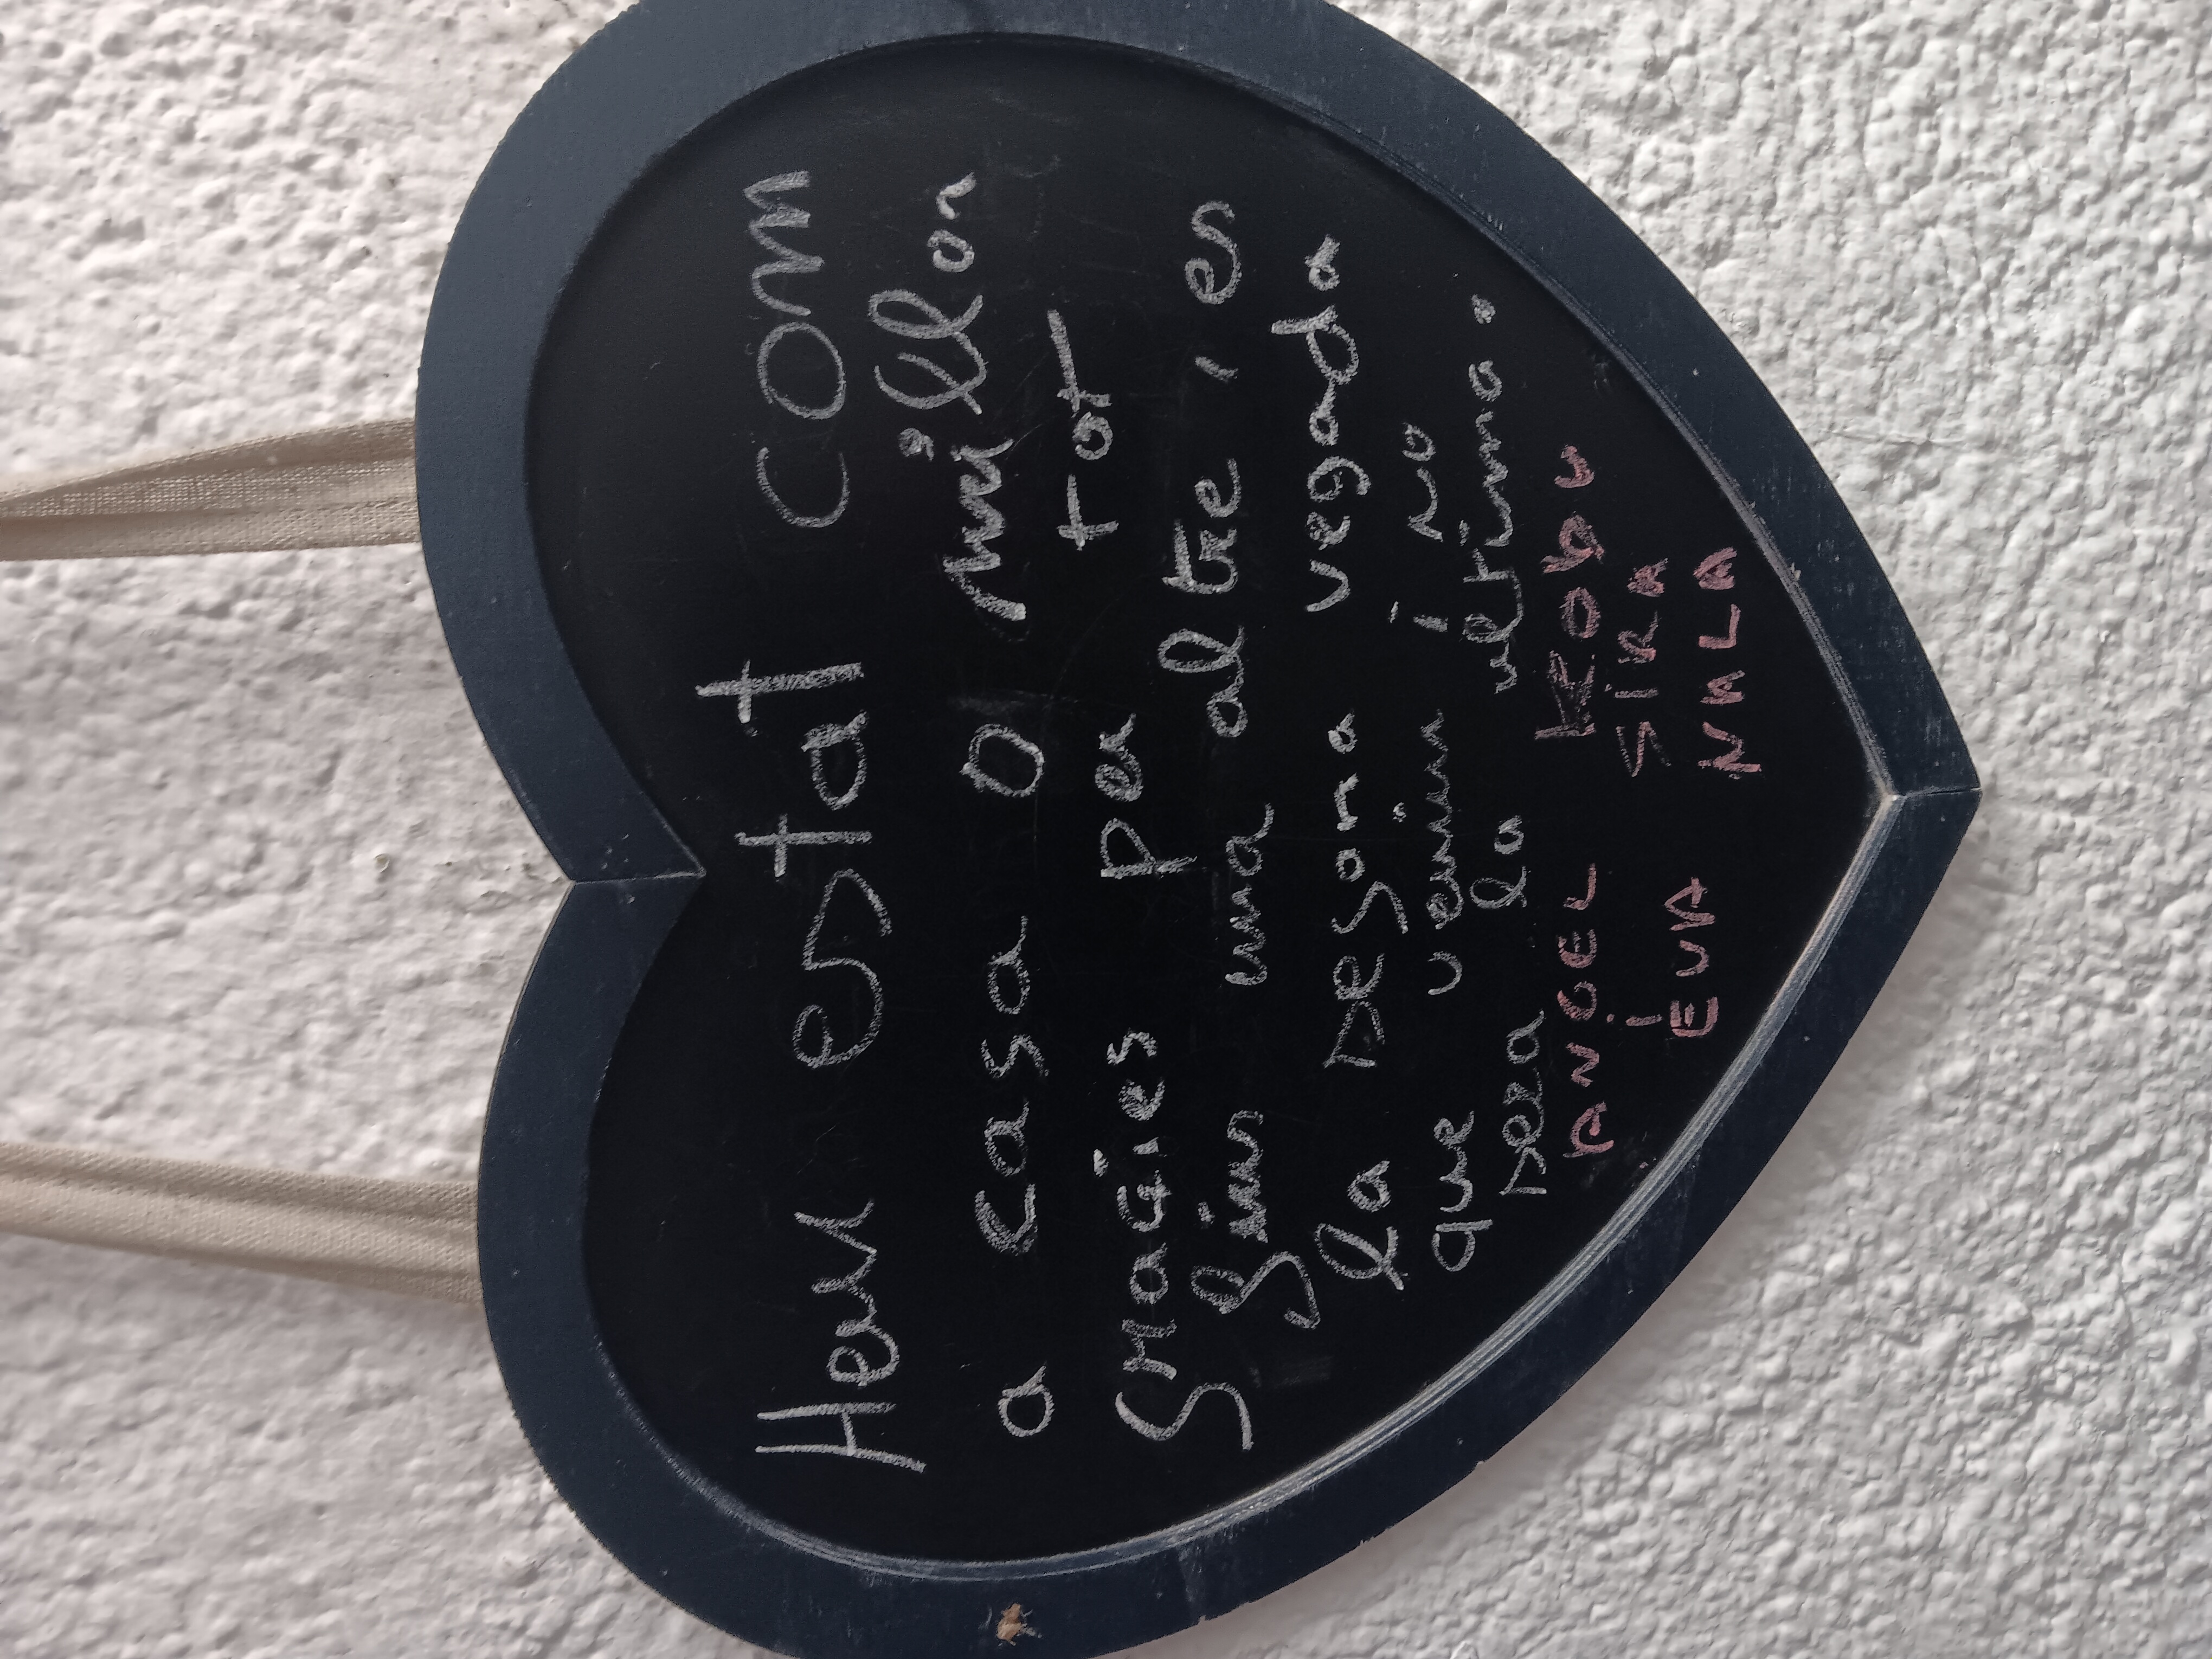 Hem estat com
a casa o millor
GRACIES per tot
Fins una altre, es
la segona vegada
que venim i no
sera la ultima.
ANGEL
i
EVA
SIRA
NALA